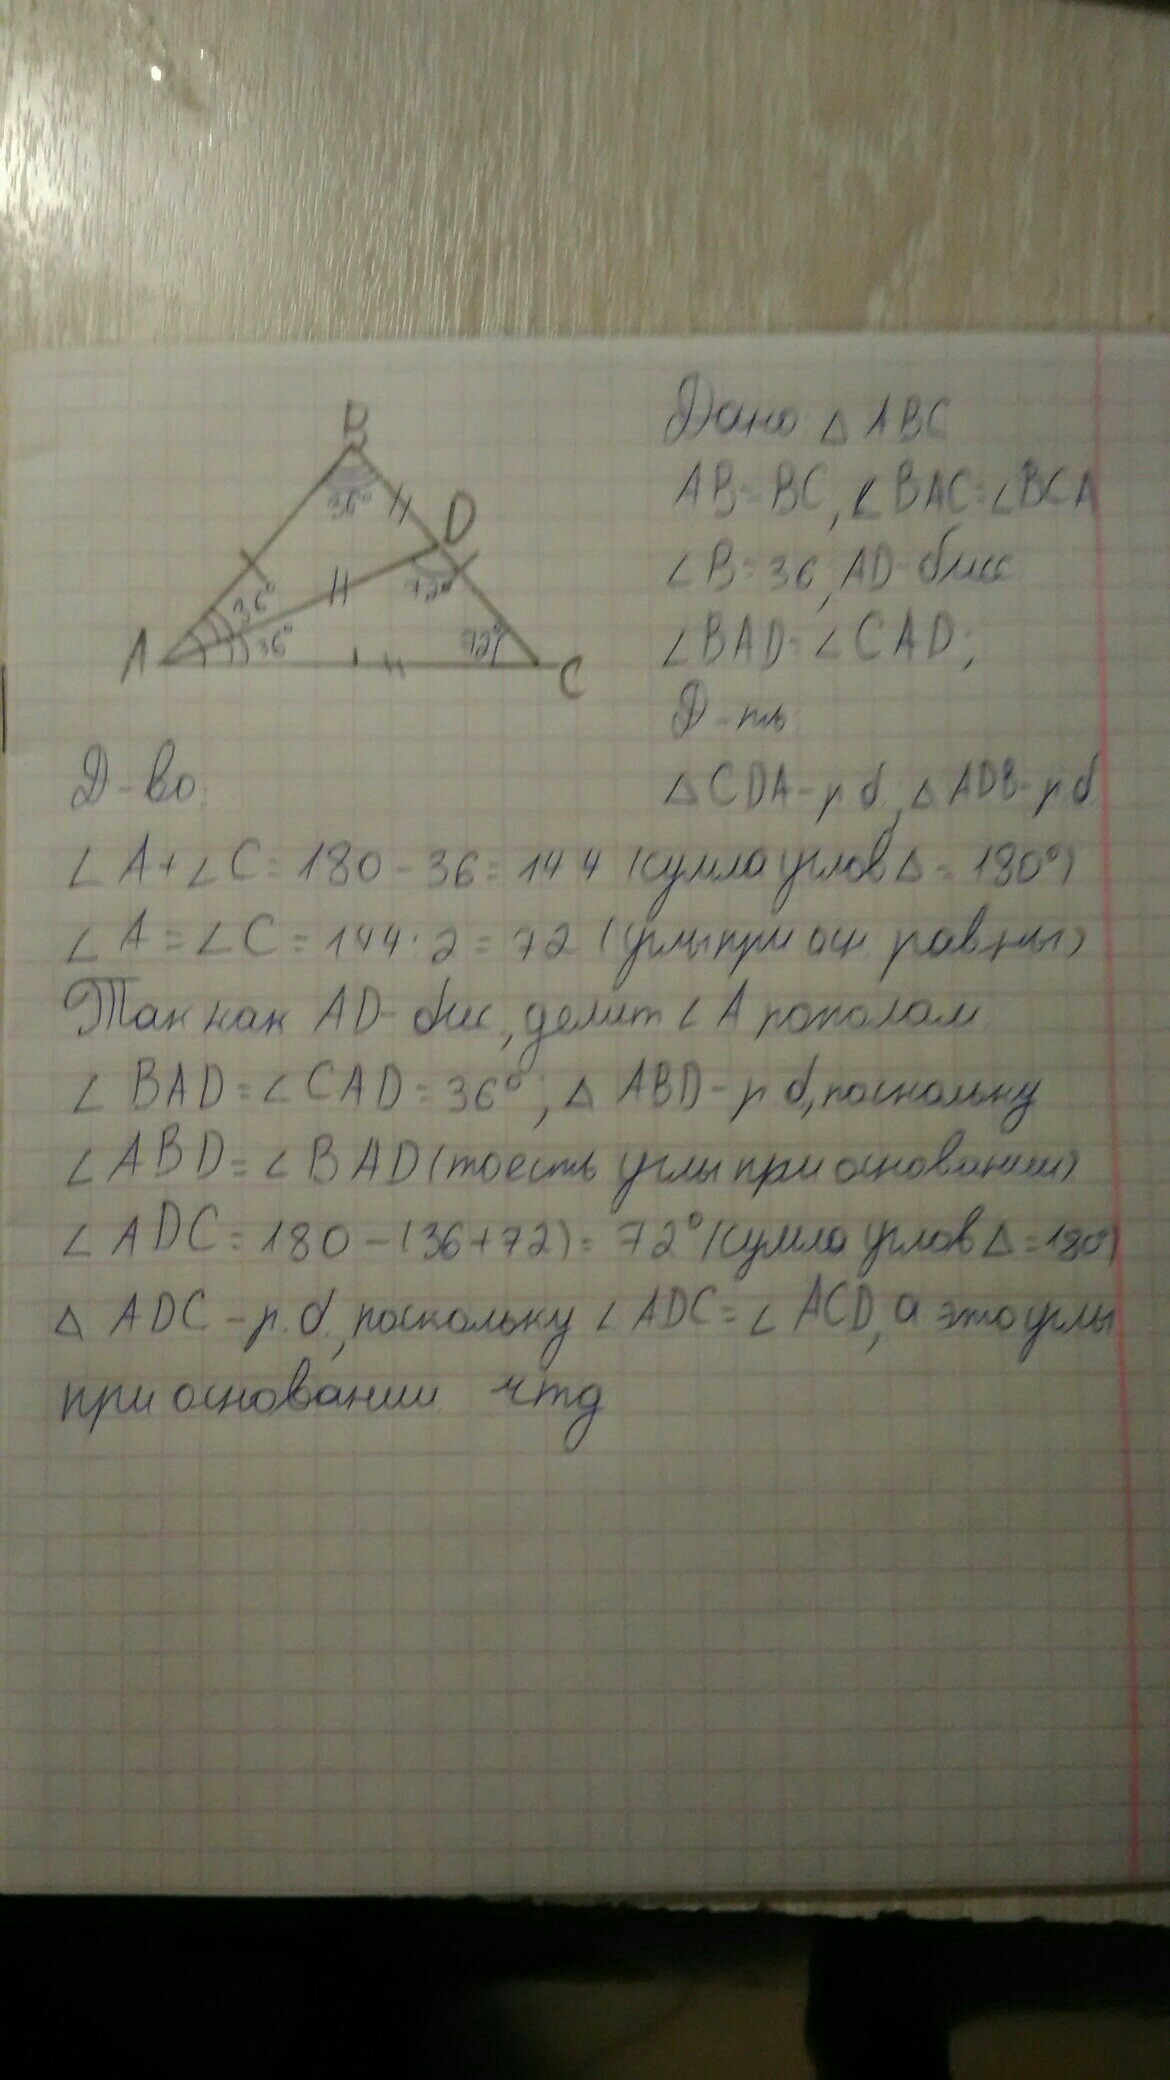 B
36°
D
72°
36°
36°
72°
A
C
Дано △ ABC
AB=BC, ∠BAC=∠BCA
∠B=36, AD-бисс
∠BAD=∠CAD;
Д-ть
△CDA-р б, △ADB-р б
Д-во:
∠A+∠C=180-36=144 (сумма углов △=180°)
∠A=∠C=144:2=72 (углы при осн. равны)
Так как AD-бис, делит ∠A пополам
∠BAD=∠CAD=36°; △ABD-р б, поскольку
∠ABD=∠BAD (тоесть углы при основании)
∠ADC=180-(36+72)=72° (сумма углов △=180°)
△ADC-р.б., поскольку ∠ADC=∠ACD, а это углы
при основании чтд